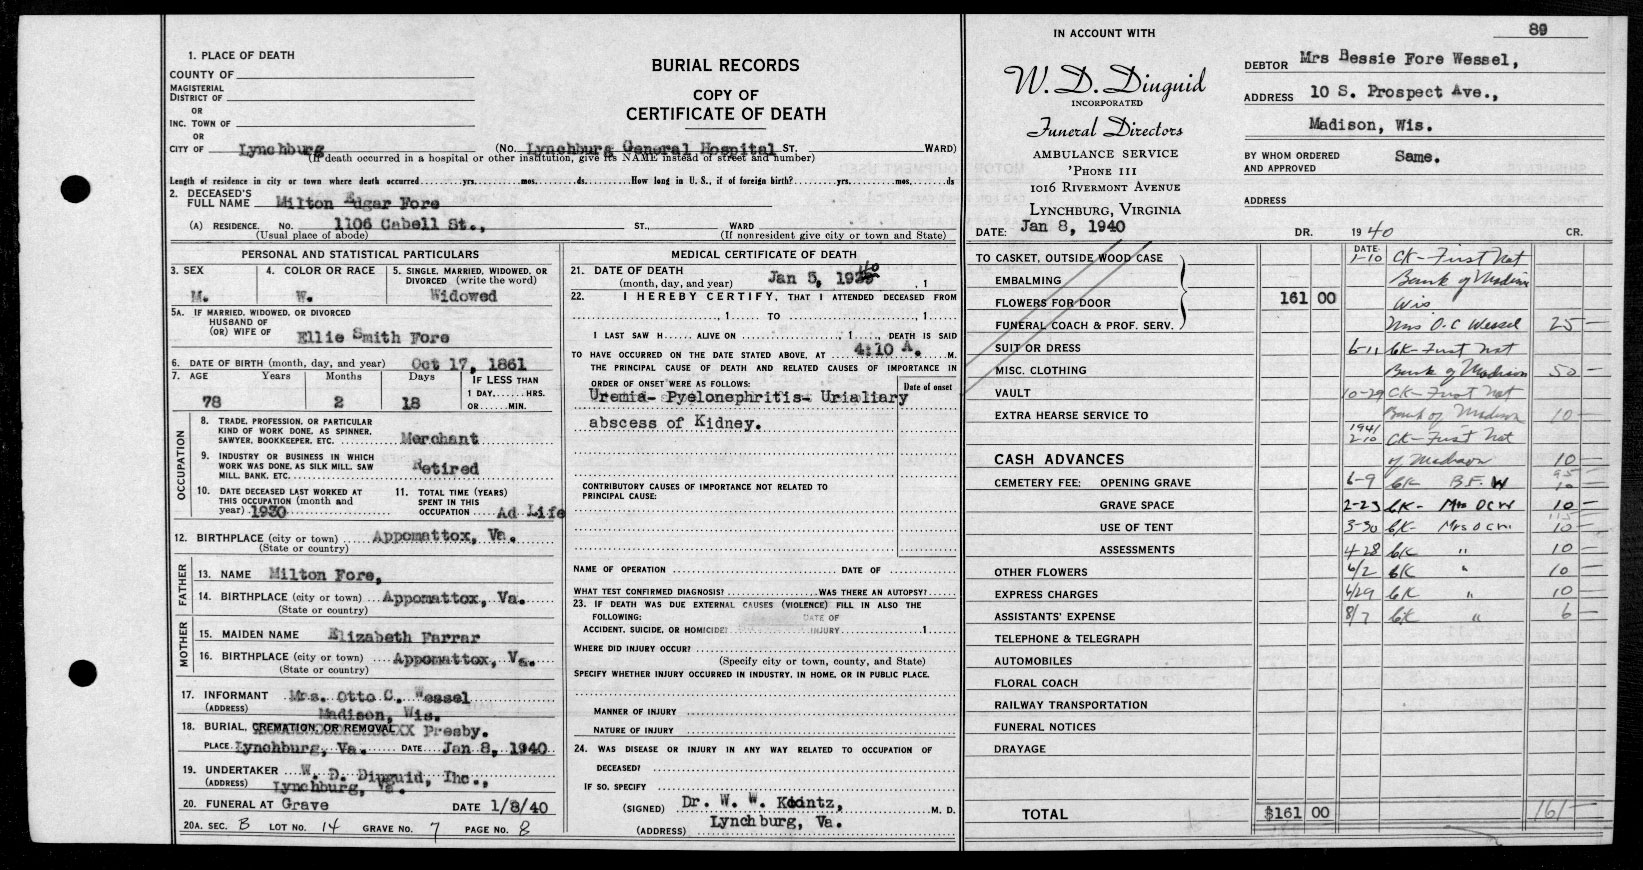 1. PLACE OF DEATH
COUNTY OF
MAGISTERIAL
DISTRICT OF
OR
INC. TOWN OF
OR
CITY OF Lynchburg (No. Lynchburg General Hospital ST. WARD)
(If death occurred in a hospital or other institution, give its NAME instead of street and number)
BURIAL RECORDS
COPY OF
CERTIFICATE OF DEATH
Length of residence in city or town where death occurred yrs. mos. ds. How long in U. S., if of foreign birth? yrs. mos. ds
2. DECEASED'S
FULL NAME Milton Edgar Fore
(A) RESIDENCE. NO. 1106 Cabell St., ST., WARD
(Usual place of abode) (If nonresident give city or town and State)
PERSONAL AND STATISTICAL PARTICULARS
3. SEX 4. COLOR OR RACE 5. SINGLE, MARRIED, WIDOWED, OR
DIVORCED (write the word)
M. W. Widowed
5A. IF MARRIED, WIDOWED, OR DIVORCED
HUSBAND OF
(OR) WIFE OF Ellie Smith Fore
6. DATE OF BIRTH (month, day, and year) Oct 17, 1861
7. AGE Years Months Days IF LESS THAN
1 DAY, HRS.
OR MIN.
78 2 18
OCCUPATION
8. TRADE, PROFESSION, OR PARTICULAR
KIND OF WORK DONE, AS SPINNER,
SAWYER, BOOKKEEPER, ETC. Merchant
9. INDUSTRY OR BUSINESS IN WHICH
WORK WAS DONE, AS SILK MILL, SAW
MILL, BANK, ETC. Retired
10. DATE DECEASED LAST WORKED AT
THIS OCCUPATION (month and
year) 1930
11. TOTAL TIME (YEARS)
SPENT IN THIS
OCCUPATION Ad Life
12. BIRTHPLACE (city or town) Appomattox, Va.
(State or country)
FATHER
13. NAME Milton Fore,
14. BIRTHPLACE (city or town) Appomattox, Va.
(State or country)
MOTHER
15. MAIDEN NAME Elizabeth Farrar
16. BIRTHPLACE (city or town) Appomattox, Va.
(State or country)
17. INFORMANT Mrs. Otto C. Wessel
(ADDRESS) Madison, Wis.
18. BURIAL, CREMATION, OR REMOVAL XX Presby.
PLACE Lynchburg, Va. DATE Jan 8, 1940
19. UNDERTAKER W. D. Diuguid, Inc.,
(ADDRESS) Lynchburg, Va.
20. FUNERAL AT Grave DATE 1/8/40
20A. SEC. B LOT NO. 14 GRAVE NO. 7 PAGE NO. 8
MEDICAL CERTIFICATE OF DEATH
21. DATE OF DEATH
(month, day, and year) Jan 5, 1940 , 1
22. I HEREBY CERTIFY, THAT I ATTENDED DECEASED FROM
, 1 TO , 1
I LAST SAW H ALIVE ON , 1 , DEATH IS SAID
TO HAVE OCCURRED ON THE DATE STATED ABOVE, AT 4:10 A. M.
THE PRINCIPAL CAUSE OF DEATH AND RELATED CAUSES OF IMPORTANCE IN
ORDER OF ONSET WERE AS FOLLOWS: Date of onset
Uremia- Pyelonephritis- Urialiary
abscess of Kidney.
CONTRIBUTORY CAUSES OF IMPORTANCE NOT RELATED TO
PRINCIPAL CAUSE:
NAME OF OPERATION DATE OF
WHAT TEST CONFIRMED DIAGNOSIS? WAS THERE AN AUTOPSY?
23. IF DEATH WAS DUE EXTERNAL CAUSES (VIOLENCE) FILL IN ALSO THE
FOLLOWING: DATE OF
ACCIDENT, SUICIDE, OR HOMICIDE? INJURY 1
WHERE DID INJURY OCCUR?
(Specify city or town, county, and State)
SPECIFY WHETHER INJURY OCCURRED IN INDUSTRY, IN HOME, OR IN PUBLIC PLACE.
MANNER OF INJURY
NATURE OF INJURY
24. WAS DISEASE OR INJURY IN ANY WAY RELATED TO OCCUPATION OF
DECEASED?
IF SO, SPECIFY
(SIGNED) Dr. W. W. Kointz, M. D.
(ADDRESS) Lynchburg, Va.
IN ACCOUNT WITH
W. D. Diuguid
INCORPORATED
Funeral Directors
AMBULANCE SERVICE
'PHONE 111
1016 RIVERMONT AVENUE
LYNCHBURG, VIRGINIA
89
DEBTOR Mrs Bessie Fore Wessel,
ADDRESS 10 S. Prospect Ave.,
Madison, Wis.
BY WHOM ORDERED
AND APPROVED Same.
ADDRESS
DATE: Jan 8, 1940 DR. 1940 CR.
TO CASKET, OUTSIDE WOOD CASE
EMBALMING
FLOWERS FOR DOOR 161 00
FUNERAL COACH & PROF. SERV.
SUIT OR DRESS
MISC. CLOTHING
VAULT
EXTRA HEARSE SERVICE TO
CASH ADVANCES
CEMETERY FEE: OPENING GRAVE
GRAVE SPACE
USE OF TENT
ASSESSMENTS
OTHER FLOWERS
EXPRESS CHARGES
ASSISTANTS' EXPENSE
TELEPHONE & TELEGRAPH
AUTOMOBILES
FLORAL COACH
RAILWAY TRANSPORTATION
FUNERAL NOTICES
DRAYAGE
TOTAL $161 00
DATE
1-10 CK - First Nat
Bank of Madison
Wis
Mrs O. C Wessel 25 -
6-11 CK - First Nat
Bank of Madison 50 -
10-29 CK - First Nat
Bank of Madison 10 -
1941
2-10 CK - First Nat
of Madison 10 -
95
6-9 CK - B. F. W 10 -
2-23 CK - Mrs OCW 10 -
115
3-30 CK - Mrs O C W. 10 -
4-28 CK " 10 -
6/2 CK " 10 -
6/29 CK " 10 -
8/7 CK " 6 -
161 -